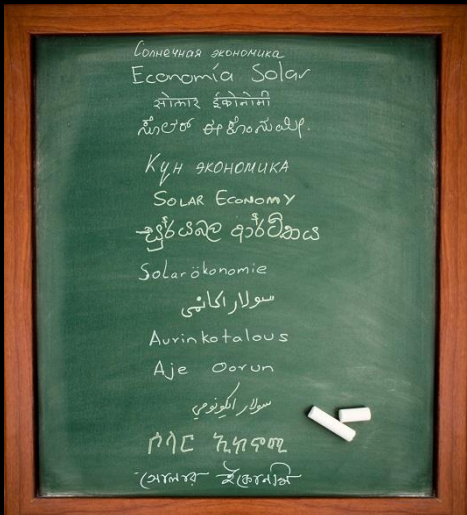 Солнечная экономика
Economía Solar
सोलार ईकोनोमी
ಸೋಲಾರ್ ಈಕೊನೊಮಿ.
Күн экономика
SOLAR ECONOMY
සූර්යබල ආර්ථිකය
Solarökonomie
سولار اکانمی
Aurinkotalous
Aje Oorun
سولار ايکونومي
ሶላር ኢኮኖሚ
সোলার ইকোনমি